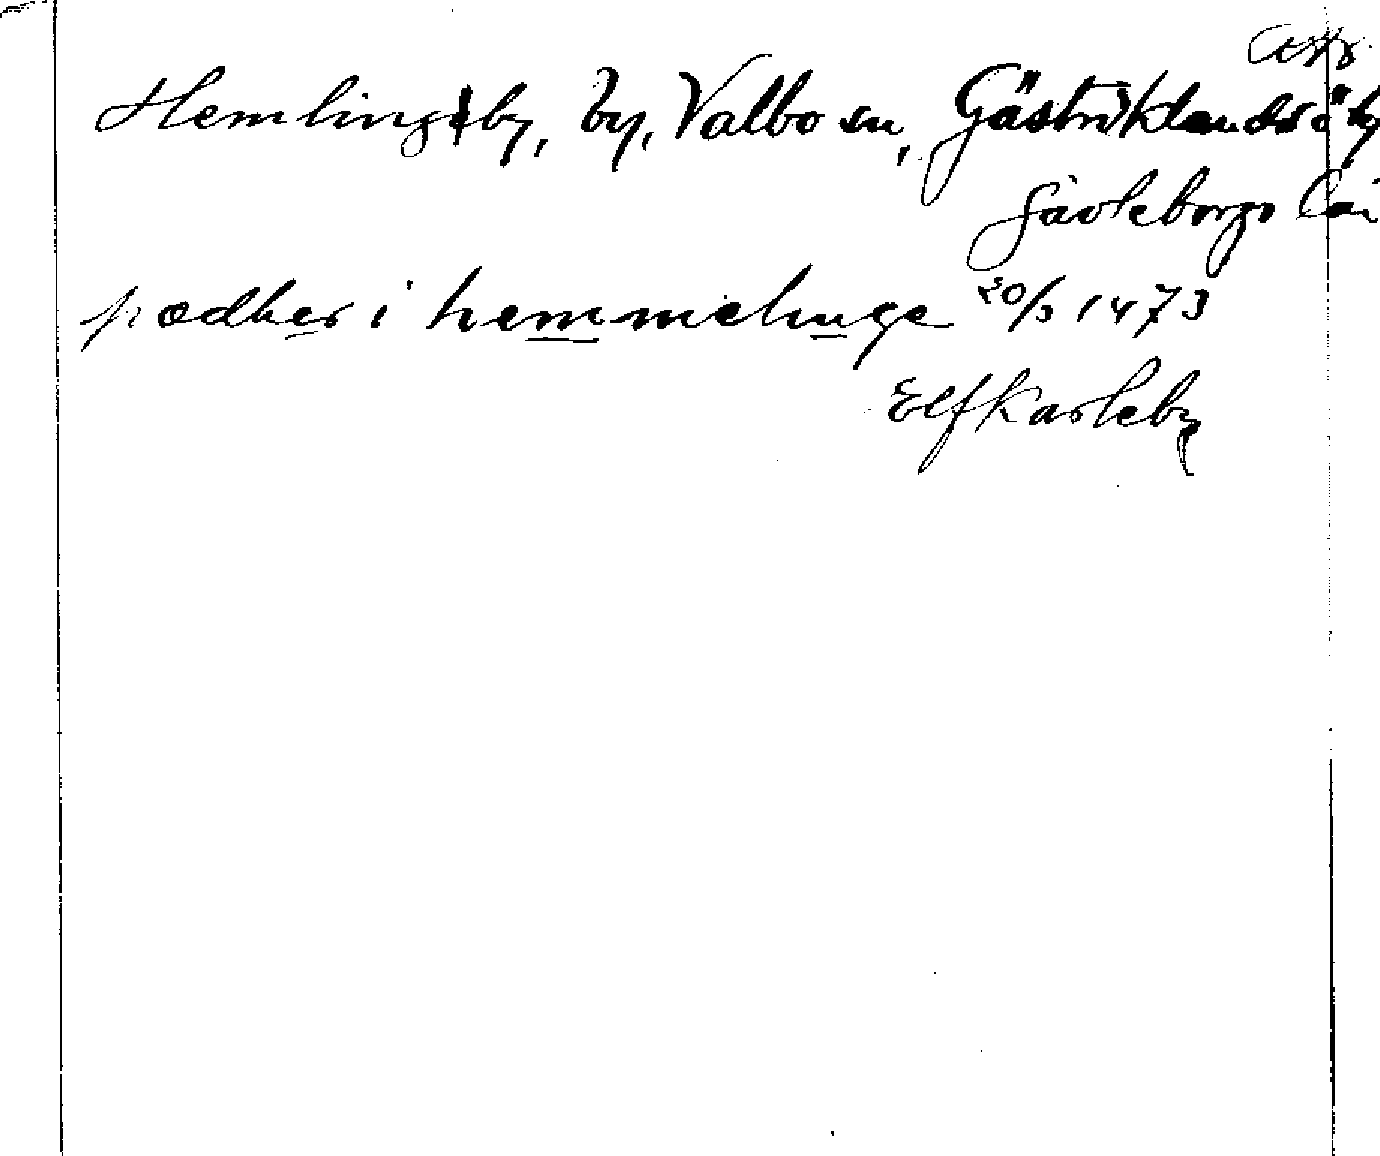 Hemlingby, by, Valbo sn, Gästriklands ö. tg
Gävleborgs län
pædher i hemmelinge 20/3 1473
Elfkarleby